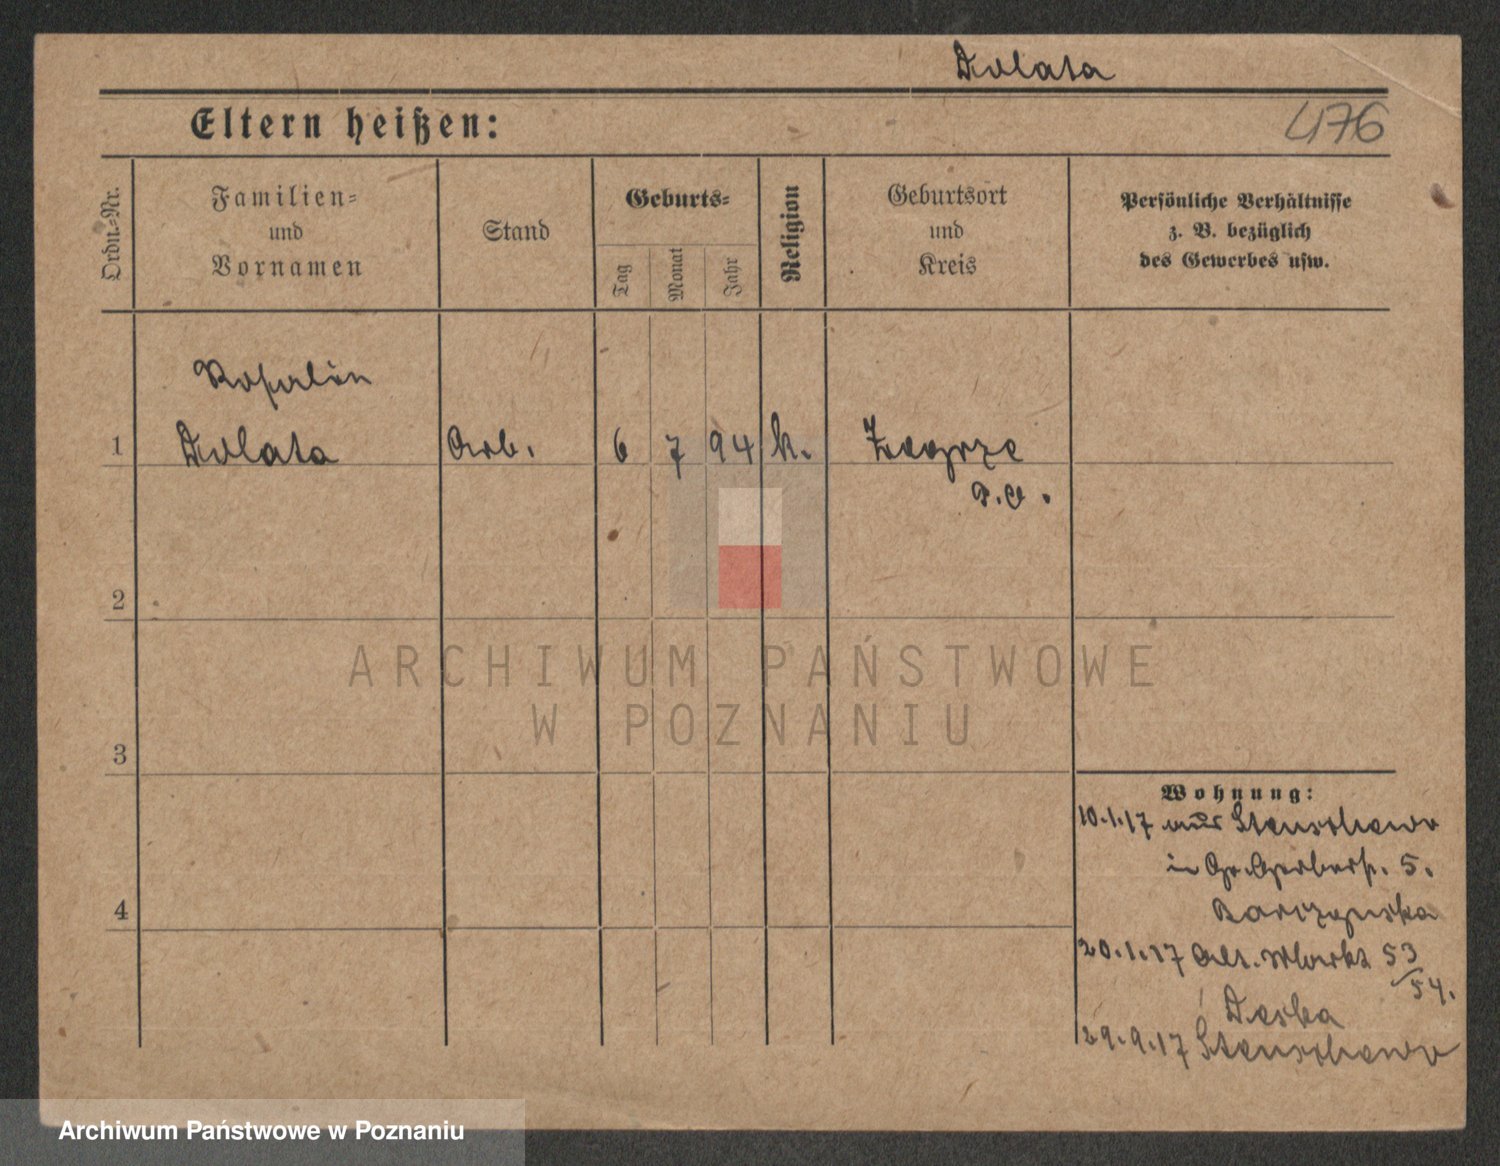 Dolata
Eltern heißen:
476
Ordn.-Nr.
Familien-
und
Vornamen
Stand
Geburts-
Tag
Monat
Jahr
Religion
Geburtsort
und
Kreis
Persönliche Verhältnisse
z. B. bezüglich
des Gewerbes usw.
Rosalie
1 Dolata Arb. 6 7 94 k. Zagrze
P.O.
2
ARCHIWUM PAŃSTWOWE
W POZNANIU
3
Wohnung:
10.1.17 aus
in Gr. Gerberst. 5.
4
20.1.17 Alt. Markt 53
/54.
Deska
29.9.17
Archiwum Państwowe w Poznaniu